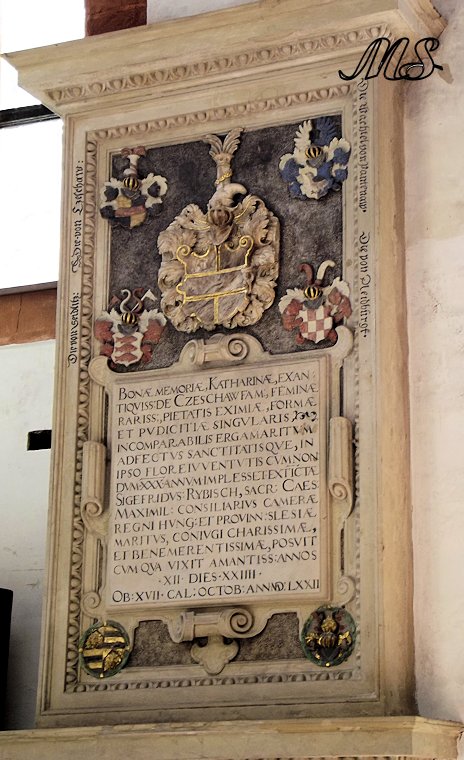 MS
Die von Czeschaw:
Die von Seidlitz:
BONÆ MEMORIÆ, KATHARINÆ, EXAN:
TIQVISS: DE CZESCHAW FAM: FEMINÆ
RARISS., PIETATIS EXIMIÆ, FORMÆ
ET PVDICITIÆ SINGULARIS,
INCOMPARABILIS ERGA MARITVM
ADFECTVS SANCTITATISQVE, IN
IPSO FLORE IVVENTVTIS CVM NON
DVM XXX ANNVM IMPLESSET EXTICTÆ
SIGEFRIDVS: RYBISCH, SACR: CAES:
MAXIMIL: CONSILIARIVS CAMERÆ
REGNI HVNG: ET PROVINN: SLESIAE
MARITVS, CONIVGI CHARISSIMÆ,
ET BENEMERENTISSIMÆ, POSVIT
CVM QVA VIXIT AMANTISS: ANNOS
·XII· DIES·XXIIII·
OB: XVII · CAL: OCTOB: ANNO: LXXII